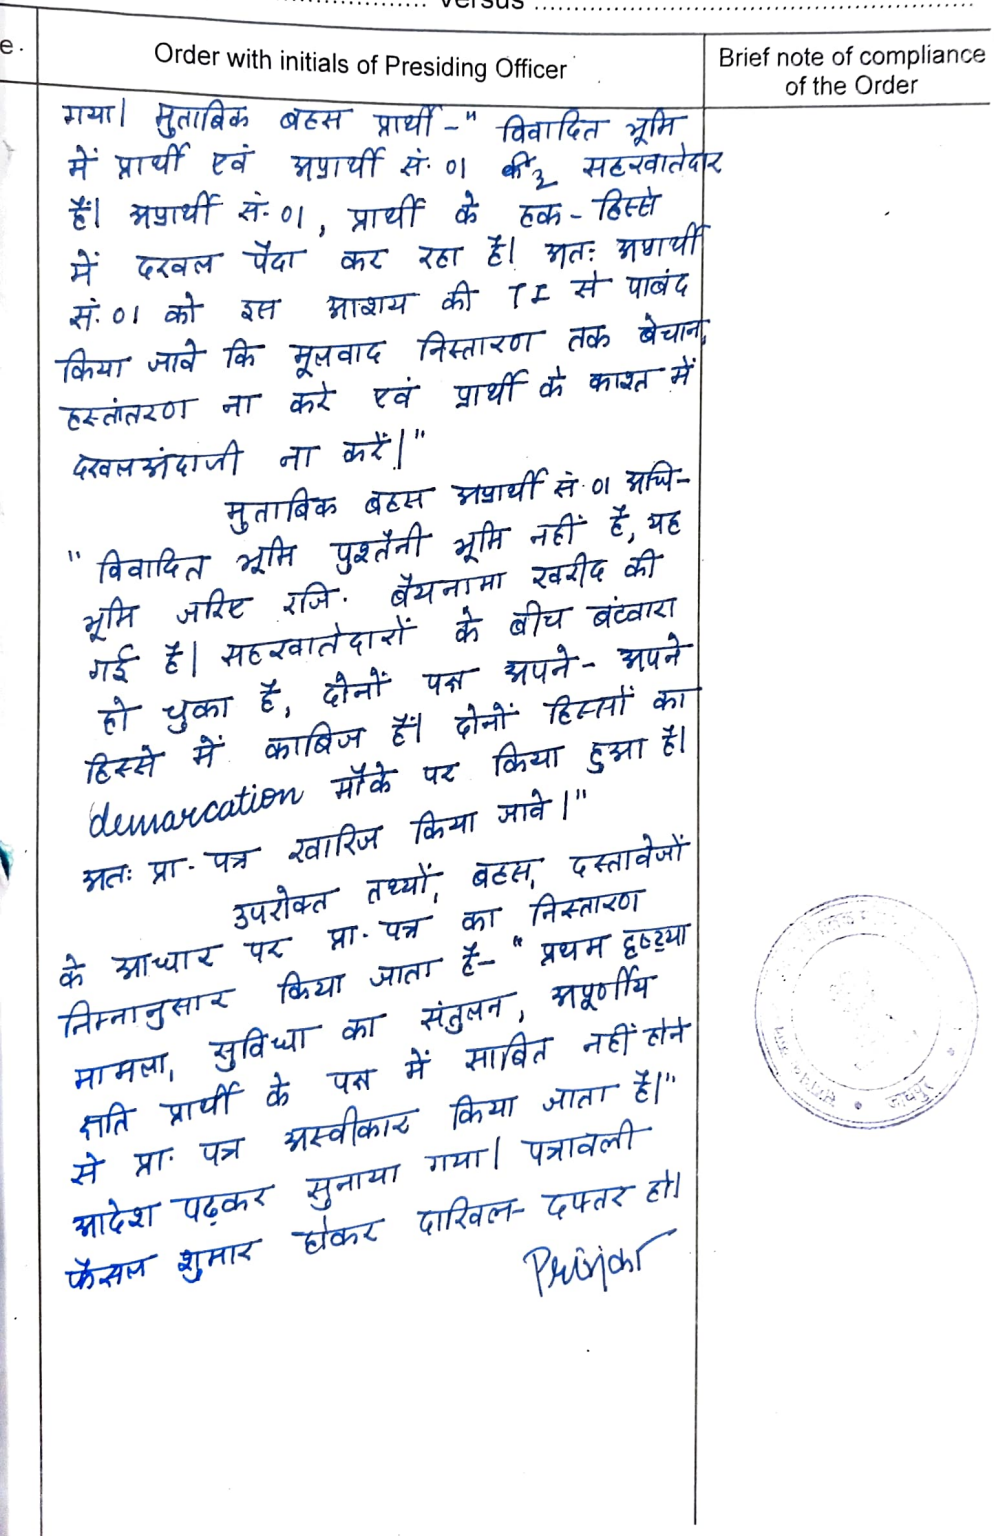 versus
e.
Order with initials of Presiding Officer
Brief note of compliance
of the Order
गया। मुताबिक बहस प्रार्थी -" विवादित भूमि
में प्रार्थी एवं अप्रार्थी सं. 01 सहखातेदार
हैं। अप्रार्थी सं. 01, प्रार्थी के हक - हिस्से
में दखल पैदा कर रहा है। अतः अप्रार्थी
सं. 01 को इस आशय की TI से पाबंद
किया जावे कि मूलवाद निस्तारण तक बेचान,
हस्तांतरण ना करे एवं प्रार्थी के काश्त में
दखलअंदाजी ना करें।"
मुताबिक बहस अप्रार्थी सं. 01 अधि-
" विवादित भूमि पुश्तैनी भूमि नहीं है, यह
भूमि जरिए रजि. बैयनामा खरीद की
गई है। सहखातेदारों के बीच बंटवारा
हो चुका है, दोनों पक्ष अपने - अपने
हिस्से में काबिज हैं। दोनों हिस्सों का
demarcation मौके पर किया हुआ है।
अतः प्रा. पत्र खारिज किया जावे।"
उपरोक्त तथ्यों, बहस, दस्तावेजों
के आधार पर प्रा. पत्र का निस्तारण
निम्नानुसार किया जाता है- "प्रथम दृष्ट्या
मामला, सुविधा का संतुलन, अपूर्णीय
क्षति प्रार्थी के पक्ष में साबित नहीं होने
से प्रा. पत्र अस्वीकार किया जाता है।"
आदेश पढ़कर सुनाया गया। पत्रावली
फैसल शुमार होकर दाखिल- दफ्तर हो।
जयपुर